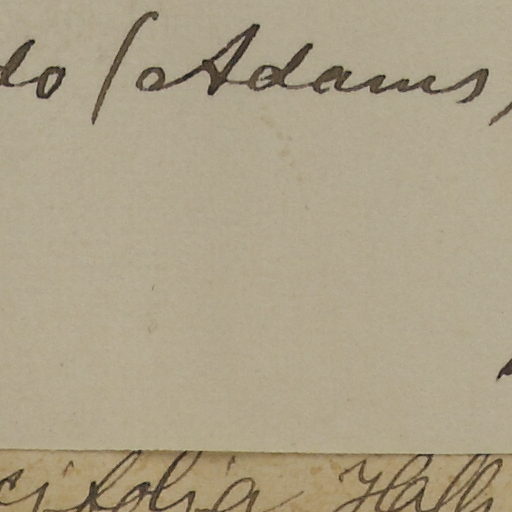 do (Adams)
cifolia Hall